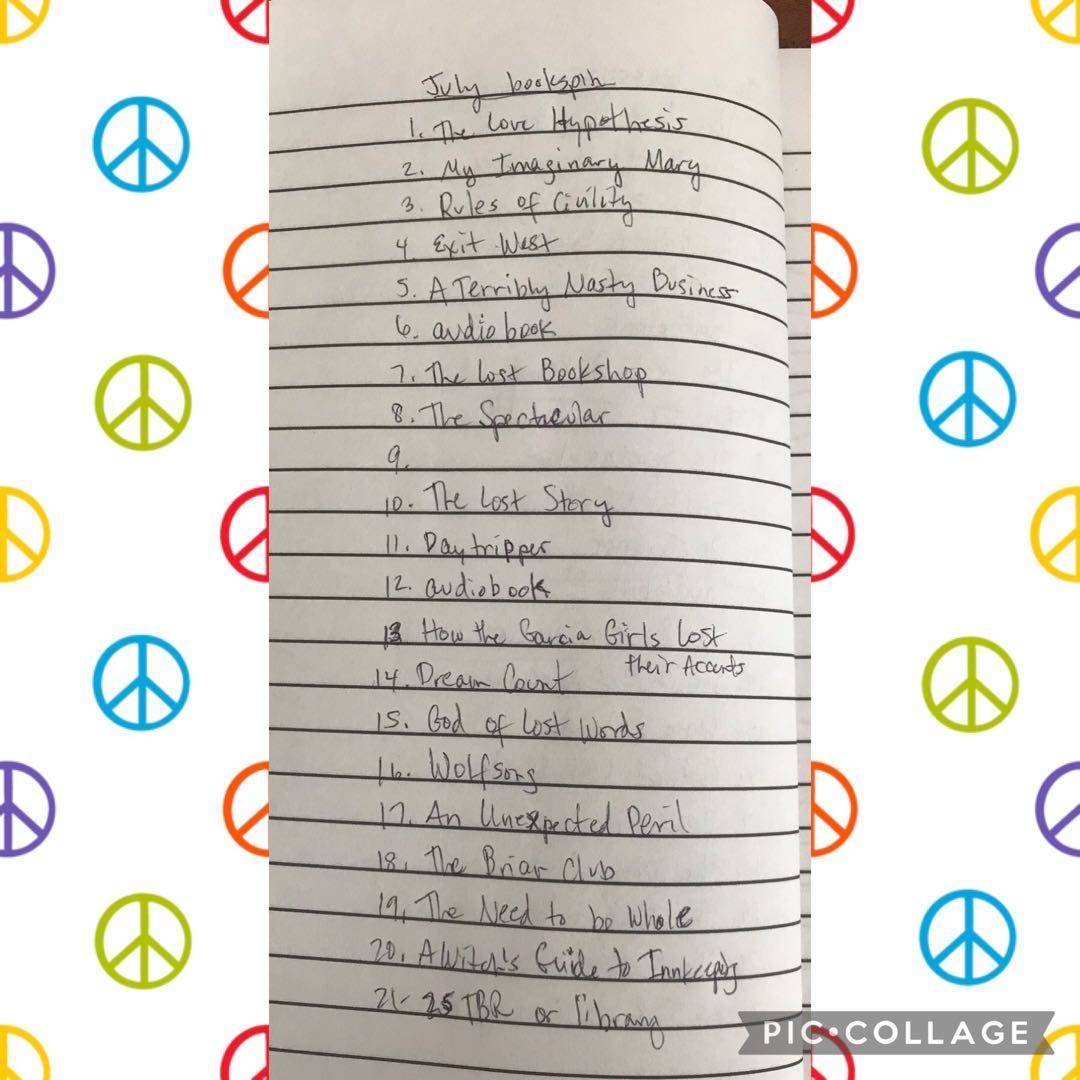 July bookspin
1. The Love Hypothesis
2. My Imaginary Mary
3. Rules of Civility
4. Exit West
5. A Terribly Nasty Business
6. audiobook
7. The Lost Bookshop
8. The Spectacular
9.
10. The Lost Story
11. Daytripper
12. audiobook
13 How the Garcia Girls Lost
their Accents
14. Dream Count
15. God of Lost Words
16. Wolfsong
17. An Unexpected Peril
18. The Briar Club
19. The Need to be Whole
20. A Witch's Guide to Innkeeping
21-25 TBR or library
PIC•COLLAGE